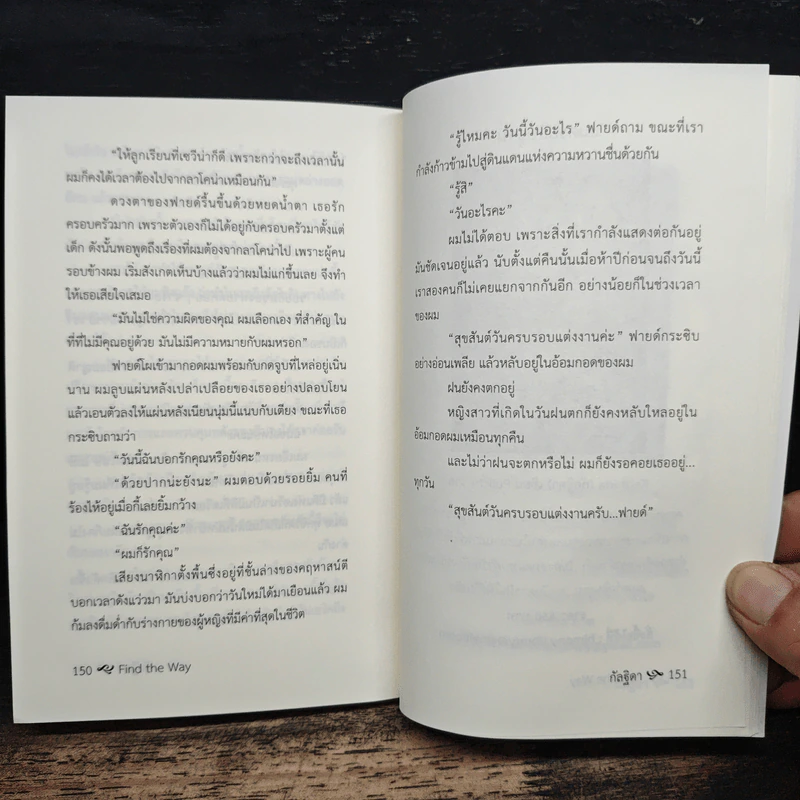 “ให้ลูกเรียนที่เซวีน่าก็ดี เพราะกว่าจะถึงเวลานั้น
ผมก็คงได้เวลาต้องไปจากลาโคน่าเหมือนกัน”
ดวงตาของฟายด์รื้นขึ้นด้วยหยดน้ำตา เธอรัก
ครอบครัวมาก เพราะตัวเองก็ไม่ได้อยู่กับครอบครัวมาตั้งแต่
เด็ก ดังนั้นพอพูดถึงเรื่องที่ผมต้องจากลาโคน่าไป เพราะผู้คน
รอบข้างผม เริ่มสังเกตเห็นบ้างแล้วว่าผมไม่แก่ขึ้นเลย จึงทำ
ให้เธอเสียใจเสมอ
“มันไม่ใช่ความผิดของคุณ ผมเลือกเอง ที่สำคัญ ใน
ที่ที่ไม่มีคุณอยู่ด้วย มันไม่มีความหมายกับผมหรอก”
ฟายด์โผเข้ามากอดผมพร้อมกับกดจูบที่ไหล่อยู่เนิ่น
นาน ผมลูบแผ่นหลังเปล่าเปลือยของเธออย่างปลอบโยน
แล้วเอนตัวลงให้แผ่นหลังเนียนนุ่มนี้แนบกับเตียง ขณะที่เธอ
กระซิบถามว่า
“วันนี้ฉันบอกรักคุณหรือยังคะ”
“ด้วยปากน่ะยังนะ” ผมตอบด้วยรอยยิ้ม คนที่
ร้องไห้อยู่เมื่อกี้เลยยิ้มกว้าง
“ฉันรักคุณค่ะ”
“ผมก็รักคุณ”
เสียงนาฬิกาตั้งพื้นซึ่งอยู่ที่ชั้นล่างของคฤหาสน์ตี
บอกเวลาดังแว่วมา มันบ่งบอกว่าวันใหม่ได้มาเยือนแล้ว ผม
ก้มลงดื่มด่ำกับร่างกายของผู้หญิงที่มีค่าที่สุดในชีวิต
150 Find the Way
“รู้ไหมคะ วันนี้วันอะไร” ฟายด์ถาม ขณะที่เรา
กำลังก้าวข้ามไปสู่ดินแดนแห่งความหวานชื่นด้วยกัน
“รู้สิ”
“วันอะไรคะ”
ผมไม่ได้ตอบ เพราะสิ่งที่เรากำลังแสดงต่อกันอยู่
มันชัดเจนอยู่แล้ว นับตั้งแต่คืนนั้นเมื่อห้าปีก่อนจนถึงวันนี้
เราสองคนก็ไม่เคยแยกจากกันอีก อย่างน้อยก็ในช่วงเวลา
ของผม
“สุขสันต์วันครบรอบแต่งงานค่ะ” ฟายด์กระซิบ
อย่างอ่อนเพลีย แล้วหลับอยู่ในอ้อมกอดของผม
ฝนยังคงตกอยู่
หญิงสาวที่เกิดในวันฝนตกก็ยังคงหลับใหลอยู่ใน
อ้อมกอดผมเหมือนทุกคืน
และไม่ว่าฝนจะตกหรือไม่ ผมก็ยังรอคอยเธออยู่...
ทุกวัน
“สุขสันต์วันครบรอบแต่งงานครับ...ฟายด์”
.
กัลฐิดา 151